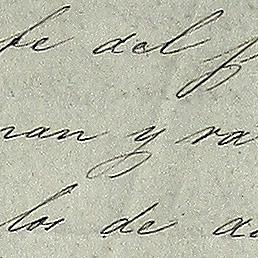 fe del p
nan y ra
los de a